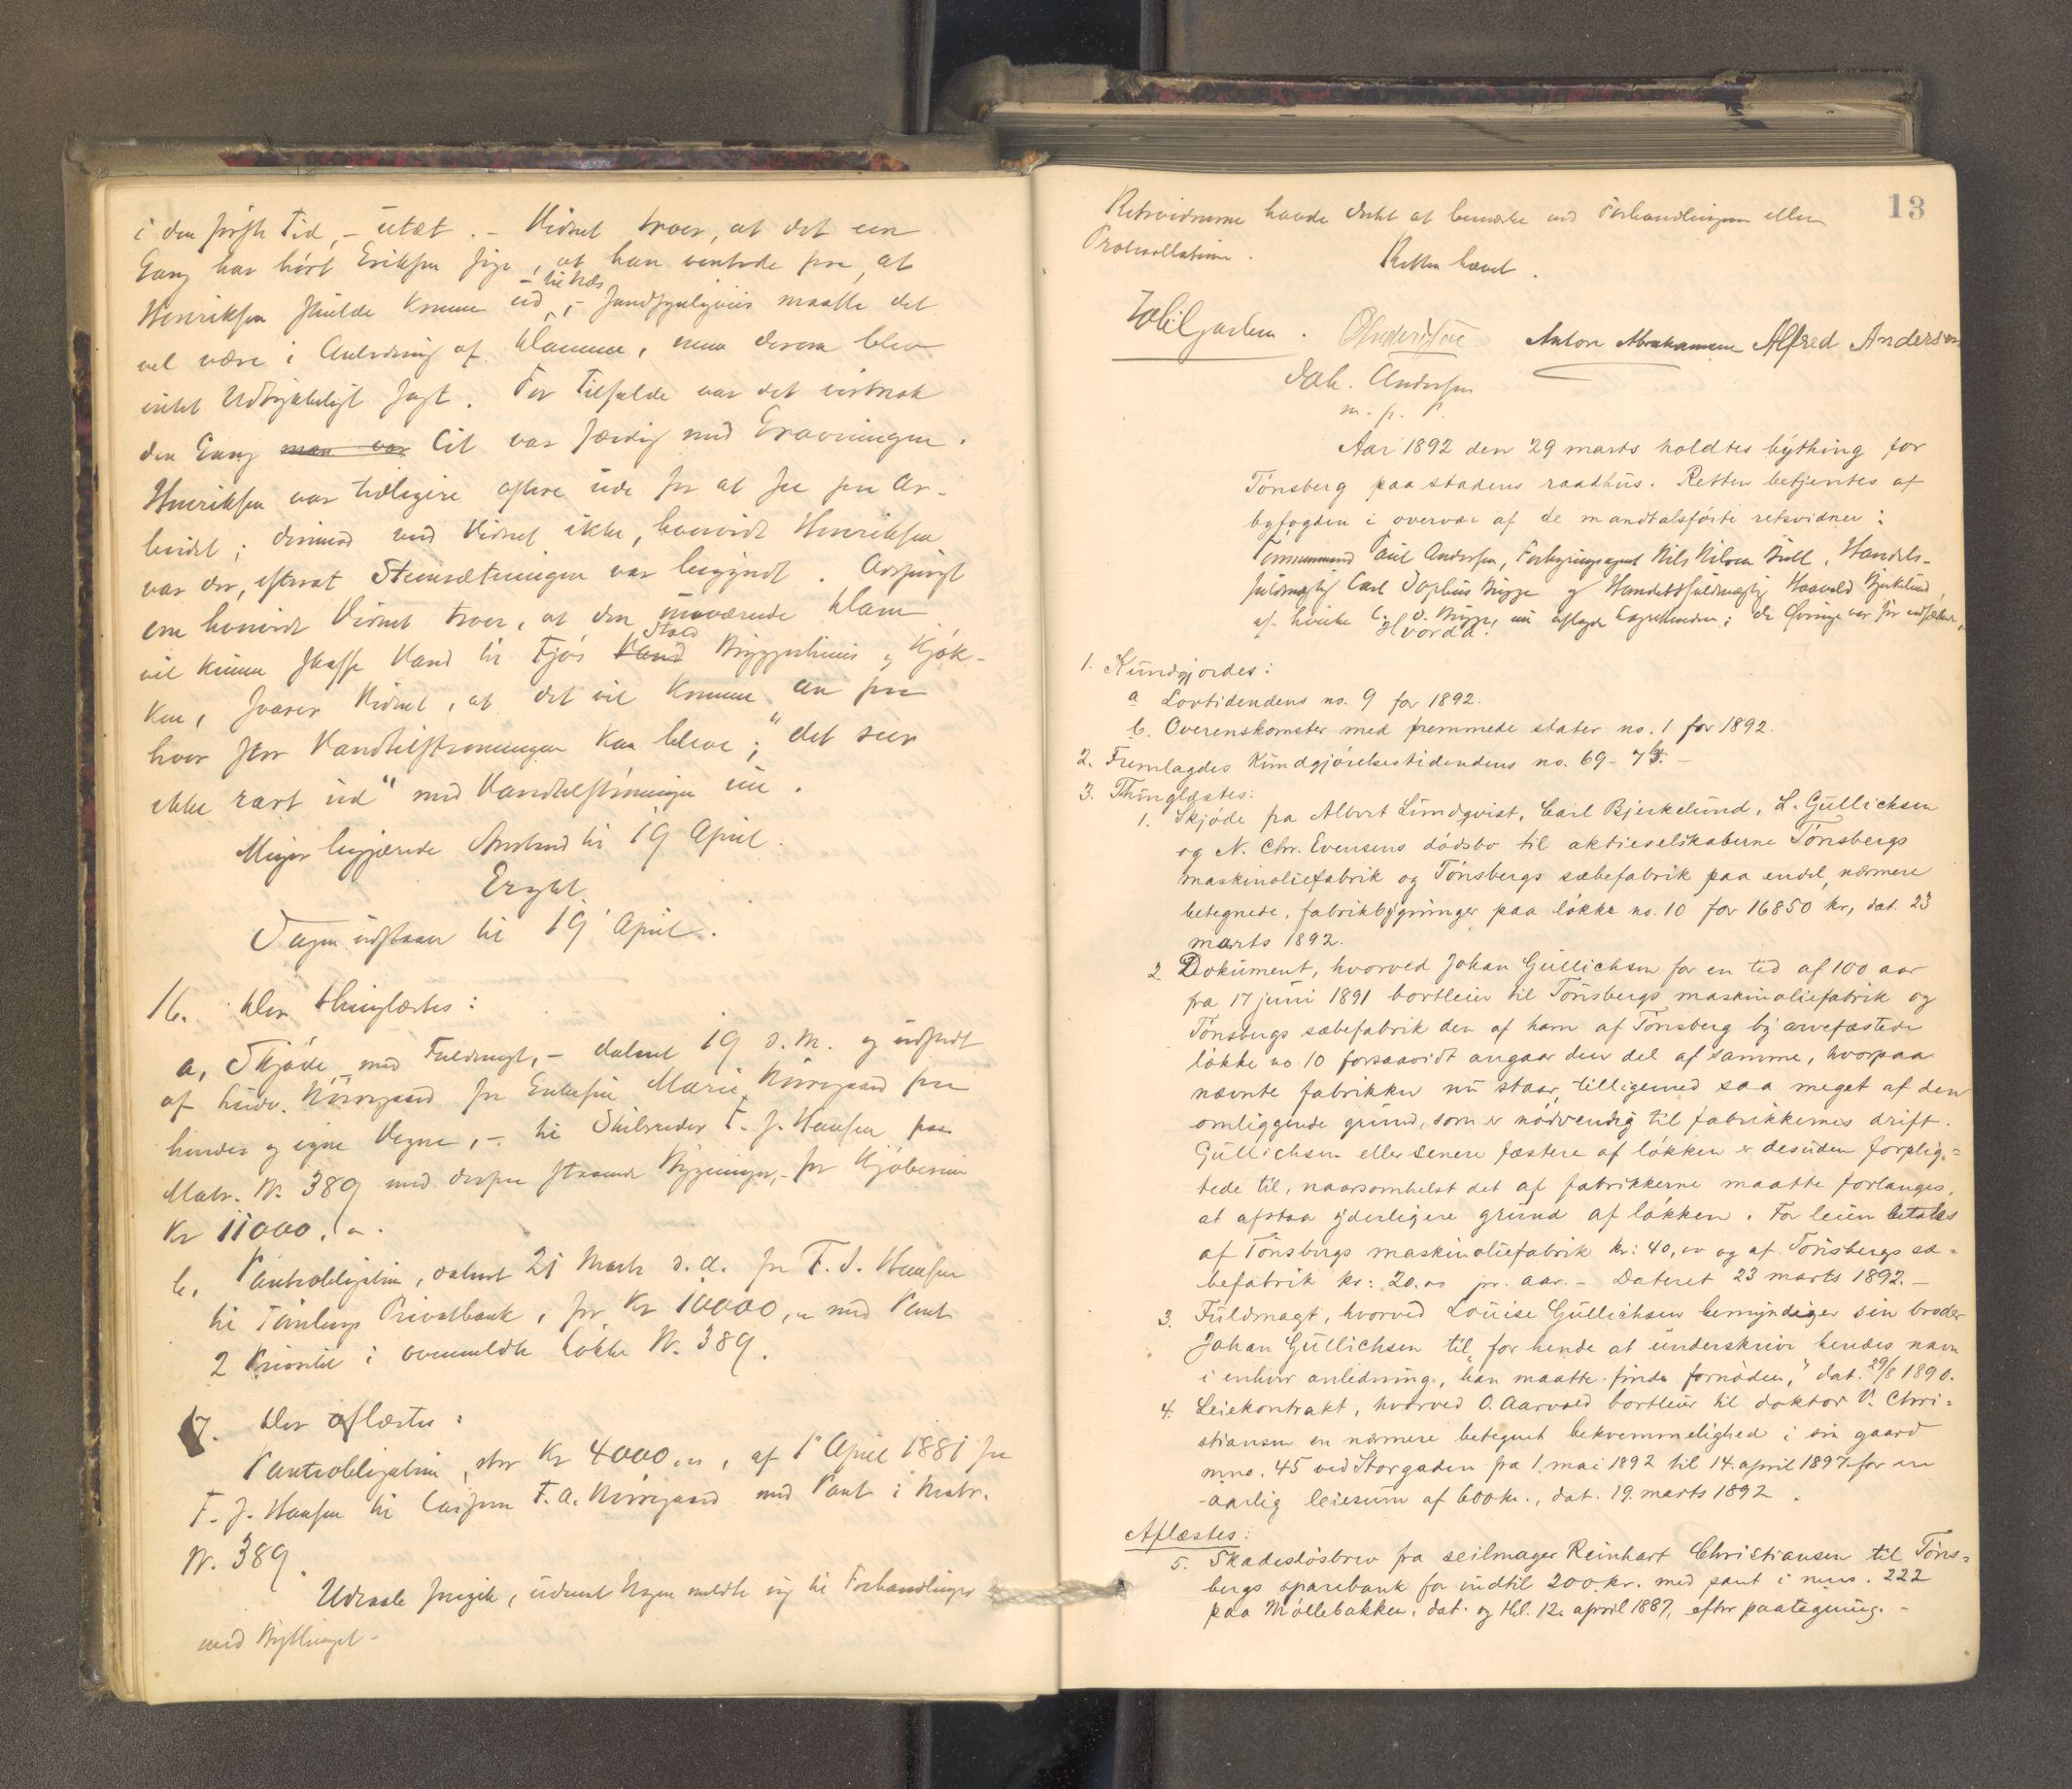 i den første Tid, – utæt. – Vidnet troer, at det een
Gang har hørt Eriksen sige, at han ventede paa, at
– til Næs –
Henriksen skulde komme ud, – sandsynligviis maatte det
vel være i Anledning af Dammen, men derom blev
intet udtrykkeligt sagt. For Tilfælde var det iertnok
den Gang man var Cit var færdig med Gravningen.
Henriksen var tidligere oftere ude for at see paa Ar-
beidet; derimod ved Vidnet ikke, hvorvidt Henriksen
var der, efterat Steensætningen var begyndt. Adspurgt
om hvorvidt Vidnet troer, at den nuværende Dam
Stald
vil kunne skaffe Vand til Fjøs Vand Bryggerhuus og Kjøk-
ken, svarer Vidnet, at det vil komme an paa
hvor stor Vandtilstrømningen kan blive; "det seer
ikke rart ud" med Vandtilstrømningen nu.
Meyer begjærede Anstand til 19 April.
Eragtet.
Sagen udstaaer til 19 April.
16. Blev thinglæstes:
a, Skjøde med Fuldmagt, – dateret 19 d. M. og udstedt
af Ludv. Nørregaard for Enkefru Marie Nørregaard paa
hendes og egne Vegne, – til Skibsreder F. J. Hansen paa
Matr. Nr. 389 med derpaa staaende Bygninger, – for Kjøbesum
Kr 11000,"
b, Pantobligation, dateret 21 Marts d. A. fra F. J. Hansen
til Tønsbergs Privatbank, for Kr 10000," med Pant
2 Prioritet i ovenmeldte Løkke Nr. 389.
17. Blev aflæstes:
Pantobligation, stor Kr 4000,", af 1 April 1881 fra
F. J. Hansen til F. A. Nørregaard med Pant i Matr.
Nr. 389.
Udraab foregik, uden at Nogen meldte sig til Forhandlinger
ved Bythinget –
13
Retsvidnerne havde Intet at bemærke ved Forhandlingen eller
Protocollationen.
Retten hævet.
Anton Abrahamsen Alfred Andersen
Jak. Andersen
m. p. P.
Aar 1892 den 29 marts holdtes bything for
Tønsberg paa stadens raadhus. Retten betjentes af
byfogden i overvær af de mandtalsførte retsvidner:
Tømmermand Paul Andersen, Forhyringsagent Nils Nilsen Bull, Handels-
fuldmægtig Carl Sophus Brygge og Handelsfuldmægtig Haavald Bjerkelund,
af hvilke C. S. Brygge nu aflagde Lagretteeden; de Øvrige var før edfæstede.
Hvorda:
1. Kundgjordes:
a Lovtidendens no. 9 for 1892.
b. Overenskomster med fremmede stater no. 1 for 1892.
2. Fremlagdes Kundgjørelsestidendens no. 69 – 76. –
3. Thinglæstes:
1. Skjøde fra Albert Lundqvist, Carl Bjerkelund, L. Gullichsen
og N. Chr. Evensens dødsbo til aktieselskaberne Tønsbergs
maskinoliefabrik og Tønsbergs sæbefabrik paa endel, nærmere
betegnede, fabrikbygninger paa løkke no. 10 for 16850 kr, dat. 23
marts 1892.
2. Dokument, hvorved Johan Gullichsen for en tid af 100 aar
fra 17 juni 1891 bortleier til Tønsbergs maskinoliefabrik og
Tønsbergs sæbefabrik den af ham af Tønsberg by arvefæstede
løkke no. 10 forsaavidt angaar den del af samme, hvorpaa
nævnte fabrikker nu staar, tilligemed saa meget af den
omliggende grund, som er nødvendig til fabrikkernes drift.
Gullichsen eller senere fæstere af løkken er desuden forplig-
tede til, naarsomhelst det af fabrikkerne maatte forlanges,
at afstaa yderligere grund af løkken. For leien betales
af Tønsbergs maskinoliefabrik kr: 40,oo og af Tønsbergs sæ-
befabrik kr: 20.oo pr. aar. – Dateret 23 marts 1892. –
3. Fuldmagt, hvorved Louise Gullichsen bemyndiger sin broder
Johan Gullichsen til, "for hende at underskrive hendes navn
i enhver anledning, han maatte finde fornøden," dat. 29/8 1890.
4. Leiekontrakt, hvorved O. Aarvold bortleier til doktor V. Chri-
stiansen en nærmere betegnet bekvemmelighed i sin gaard
mno. 45 ved Storgaden fra 1. mai 1892 til 14. april 1897 for en
aarlig leiesum af 600 kr., dat. 19. marts 1892.
Aflæstes:
5. Skadesløsbrev fra seilmager Reinhart Christiansen til Tøns-
bergs sparebank for indtil 200 kr. med pant i mno. 222
paa Møllebakken, dat. og thl. 12. april 1887, efter paategning. –